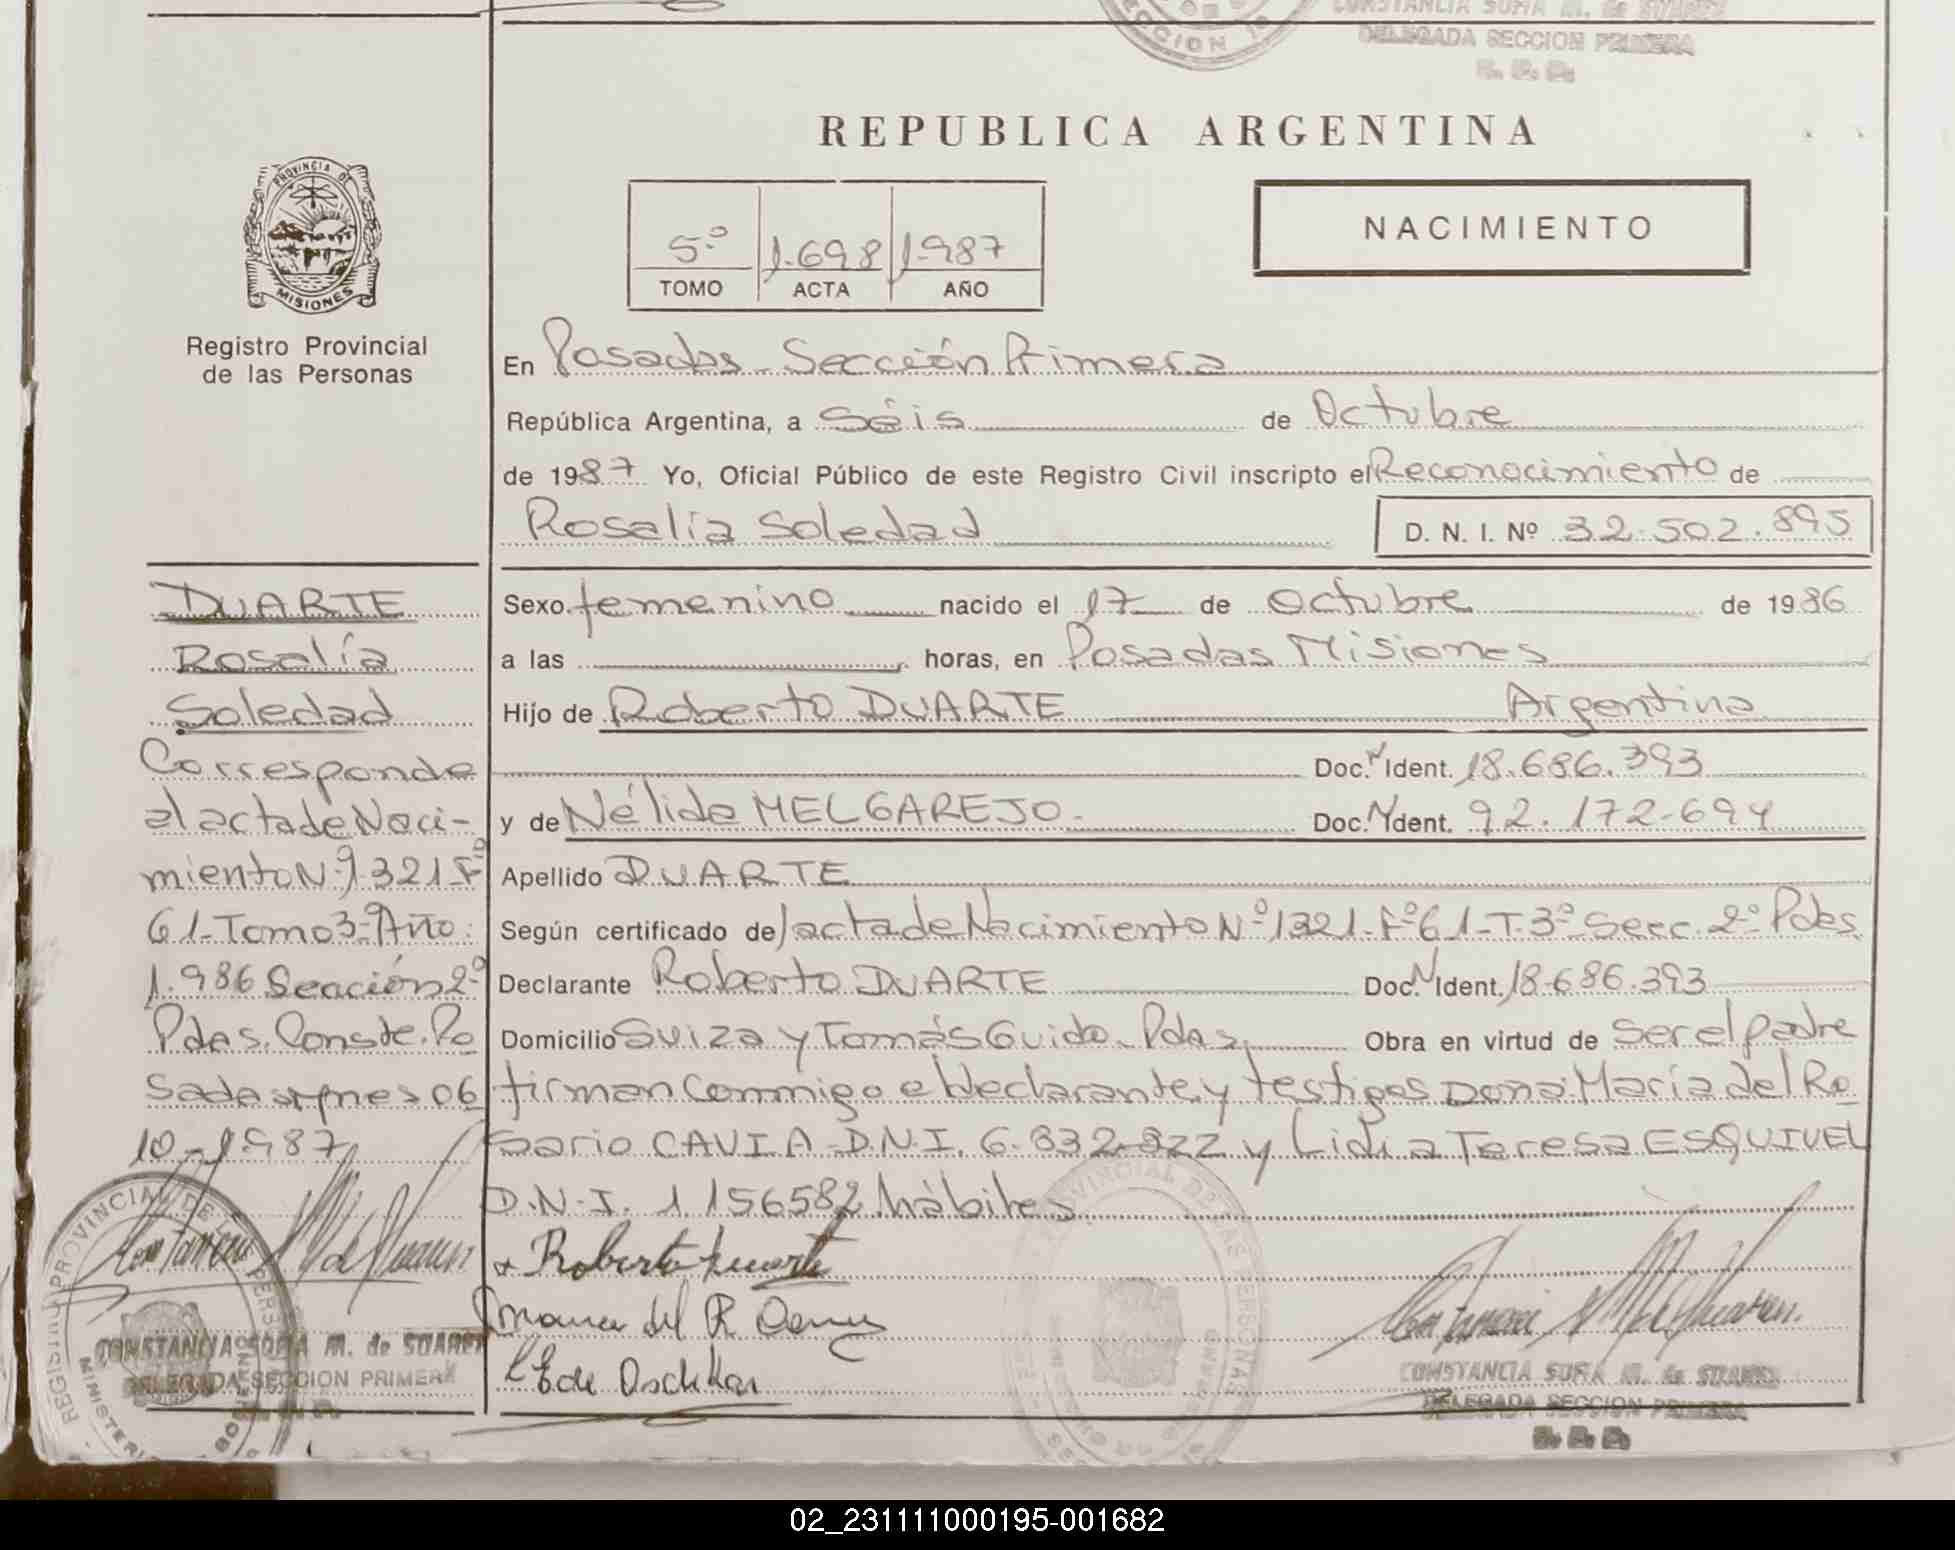 CONSTANCIA SOFIA M. de SUAREZ
SECCION 1ª
DELEGADA SECCION PRIMERA
R. P. P.
REPUBLICA ARGENTINA
PROVINCIA DE
MISIONES
5º 1.698 1.987
TOMO ACTA AÑO
NACIMIENTO
Registro Provincial
de las Personas
En Posadas - Sección Primera
República Argentina, a Séis de Octubre
de 1987 Yo, Oficial Público de este Registro Civil inscripto el Reconocimiento de
Rosalía Soledad D. N. I. Nº 32.502.895
DUARTE
Rosalía
Soledad
Corresponde
al acta de Naci-
miento Nº 1.321 Fº
61 - Tomo 3º - Año:
1.986 Sección 2º
Pdas. Conste. Po
sadas, mnes 06
10 - 1.987
Sexo femenino nacido el 17 de Octubre de 1986
a las horas, en Posadas Misiones
Hijo de Roberto DUARTE Argentina
Doc. N Ident. 18.686.393
y de Nélida MELGAREJO. Doc. N Ident. 92.172.694
Apellido DUARTE
Según certificado de/acta de Nacimiento Nº 1321 - Fº 61 - T. 3º Secc. 2º Pdas.
Declarante Roberto DUARTE Doc. N Ident. 18.686.393
Domicilio Suiza y Tomás Guido - Pdas, Obra en virtud de ser el padre
firman Conmigo el declarante y testigos Doña: María del Ro
sario CAVIA - D.N.I. 6.832.822 y Lidia Teresa ESQUIVEL
D.N.I. 1.156582 hábiles
Roberto Duarte
Maria del R
L E de
CONSTANCIA SOFIA M. de SUAREZ
DELEGADA SECCION PRIMERA
R. P. P.
CONSTANCIA SOFIA M. de SUAREZ
DELEGADA SECCION PRIMERA
R. P. P.
02_231111000195-001682